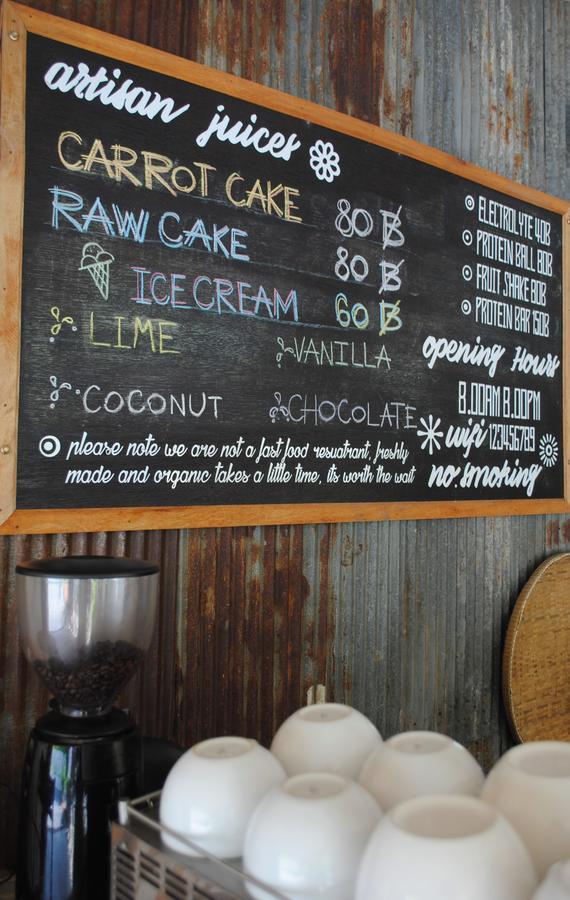 artisan juices
CARROT CAKE 80 ฿
RAW CAKE 80 ฿
ICE CREAM 60 ฿
LIME
VANILLA
COCONUT
CHOCOLATE
please note we are not a fast food resuatrant, freshly
made and organic takes a little time, its worth the wait
ELECTROLYTE 40B
PROTEIN BALL 80B
FRUIT SHAKE 80B
PROTEIN BAR 150B
opening Hours
8.00AM 8.00PM
wifi 123456789
no smoking